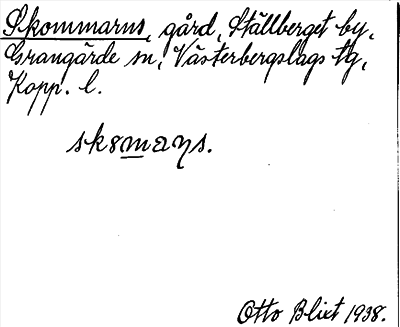 Skommarns, gård, Ställberget by,
Grangärde sn, Västerbergslags tg,
Kopp. l.
Otto Blixt 1938.